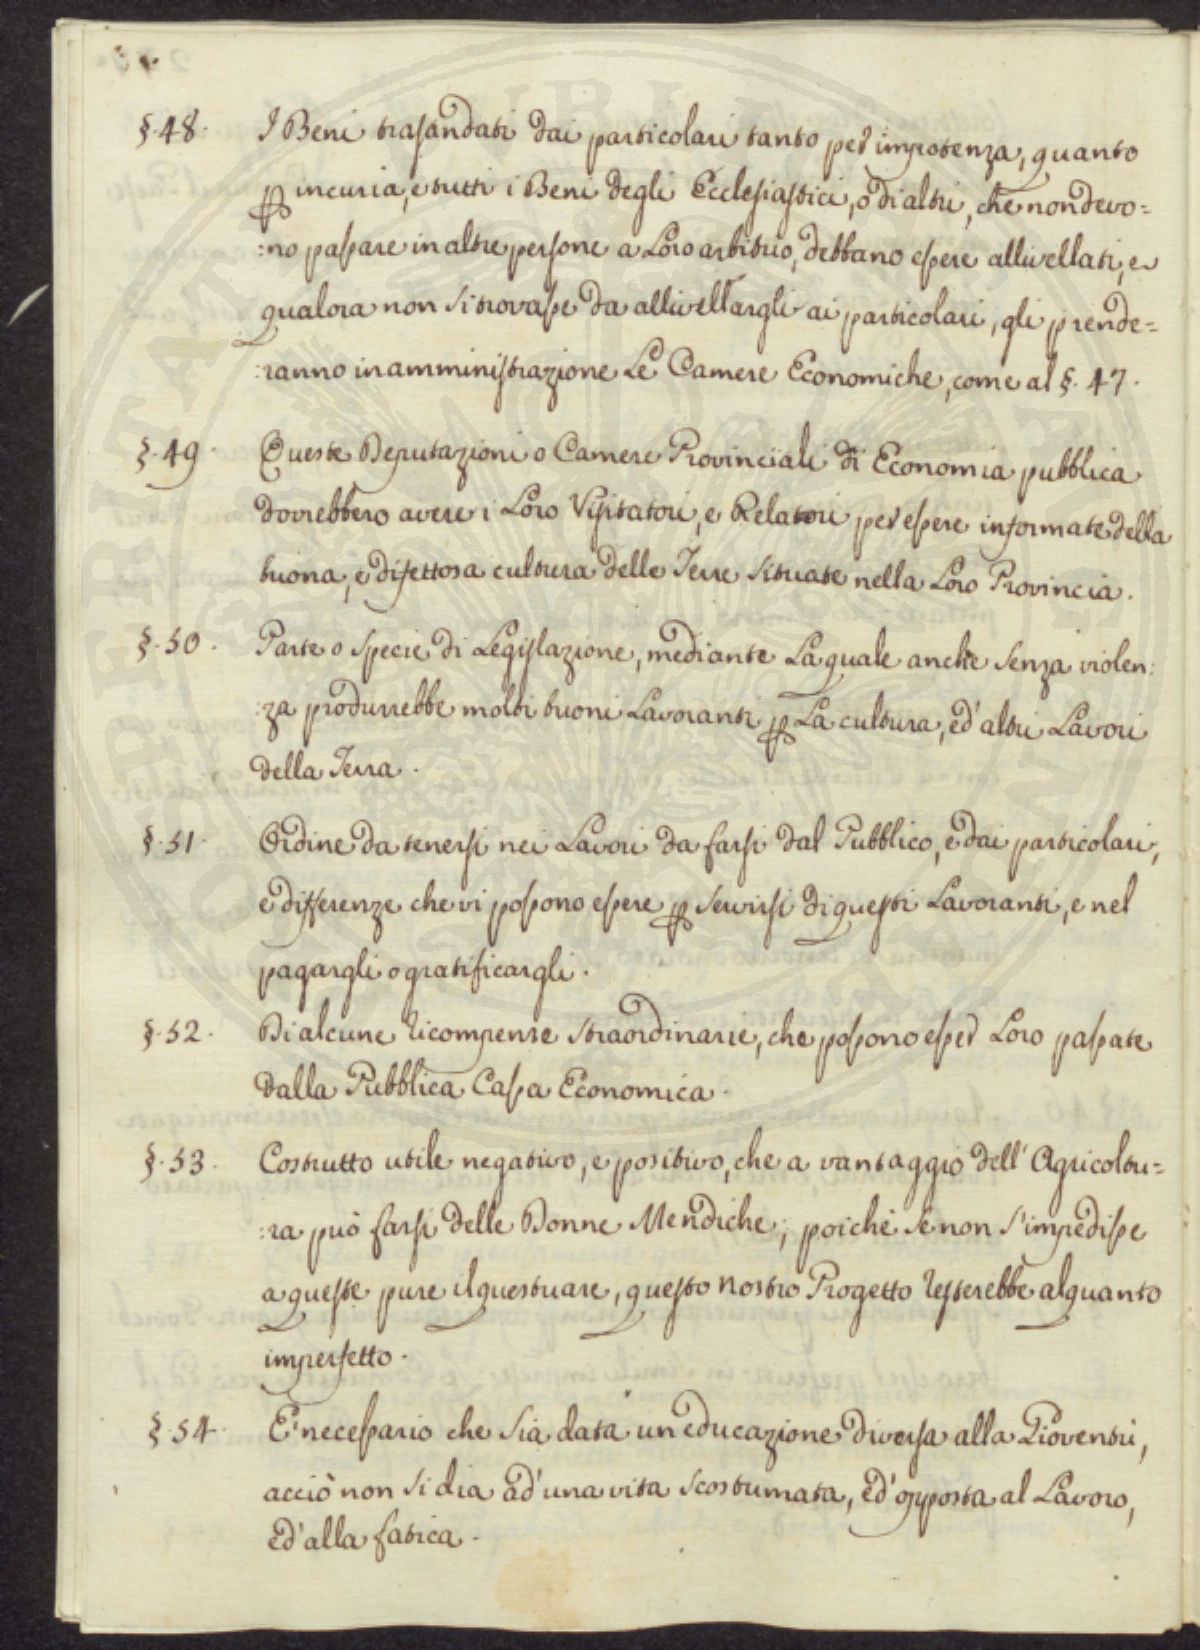 §. 48. I Beni trasandati dai particolari tanto per impotenza, quanto
p incuria, e tutti i Beni degli Ecclesiastici, o di altri, che non devo=
:no passare in altre persone a Loro arbitrio, debbano essere allivellati, e
qualora non si trovasse da allivellargli ai particolari, gli prende=
:ranno in amministrazione Le Camere Economiche, come al §. 47.
§. 49 Queste Deputazioni o Camere Provinciali di Economia pubblica
dovrebbero avere i Loro Visitatori, e Relatori per essere informate della
buona, e difettosa cultura delle Terre situate nella Loro Provincia.
§. 50. Parte o specie di Legislazione, mediante La quale anche senza violen:
:za produrrebbe molti buoni Lavoranti p La cultura, ed' altri Lavori
della Terra.
§. 51. Ordine da tenersi nei Lavori da farsi dal Pubblico, e dai particolari,
e differenze che vi possono essere p servirsi di questi Lavoranti, e nel
pagargli o gratificargli.
§. 52. Di alcune ricompense straordinarie, che possono esser Loro passate
dalla Pubblica Cassa Economica.
§. 53. Costrutto utile negativo, e positivo, che a vantaggio dell' Agricoltu=
:ra può farsi delle Donne Mendiche; poichè se non s'impedisse
a queste pure il questuare, questo nostro Progetto resterebbe alquanto
imperfetto.
§. 54. E' necessario che sia data un educazione diversa alla Gioventù,
acciò non si dia ad' una vita scostumata, ed' opposta al Lavoro,
ed' alla fatica.